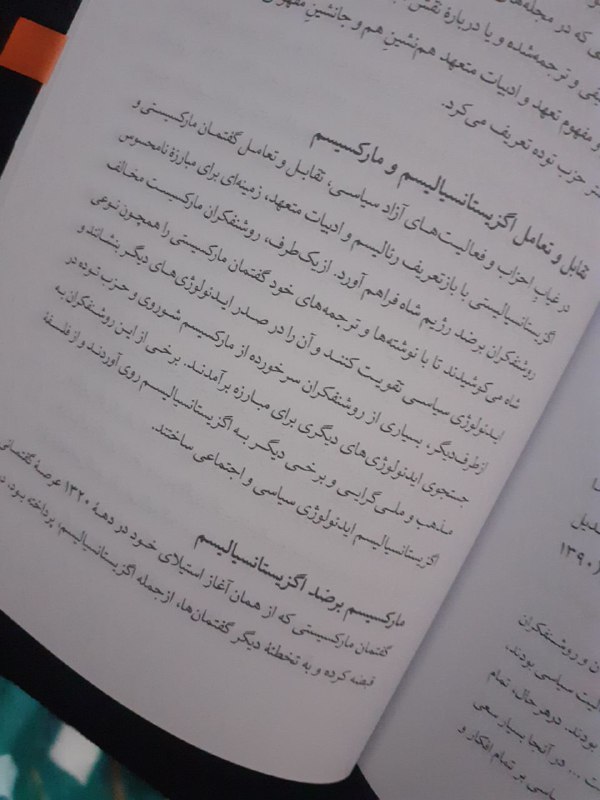 ی که در مجله‌های
یفی و ترجمه‌شده و یا دربارهٔ نقش
و مفهوم تعهد و ادبیات متعهد هم‌نشینِ هم و جانشینِ مفهوم
حزب توده تعریف می‌کرد.
تقابل و تعامل اگزیستانسیالیسم و مارکسیسم
در غیاب احزاب و فعالیت‌های آزاد سیاسی، تقابل و تعامل گفتمان مارکسیستی و
اگزیستانسیالیستی با بازتعریف رئالیسم و ادبیات متعهد، زمینه‌ای برای مبارزهٔ نامحسوس
روشنفکران برضد رژیم شاه فراهم آورد. ازیک‌طرف، روشنفکران مارکسیست مخالف
شاه می‌کوشیدند تا با نوشته‌ها و ترجمه‌های خود گفتمان مارکسیستی را همچون نوعی
ایدئولوژی سیاسی تقویت کنند و آن را در صدر ایدئولوژی‌های دیگر بنشانند و
ازطرف‌دیگر، بسیاری از روشنفکران سرخورده از مارکسیسم شوروی و حزب توده در
جستجوی ایدئولوژی‌های دیگری برای مبارزه برآمدند. برخی از این روشنفکران به
مذهب و ملی‌گرایی و برخی دیگر به اگزیستانسیالیسم روی آوردند و از فلسفهٔ
اگزیستانسیالیسم ایدئولوژی سیاسی و اجتماعی ساختند.
مارکسیسم برضد اگزیستانسیالیسم
گفتمان مارکسیستی که از همان آغاز استیلای خود در دههٔ ۱۳۲۰ عرصهٔ گفتمانی
قبضه کرده و به تخطئهٔ دیگر گفتمان‌ها، ازجمله اگزیستانسیالیسم، پرداخته بود، در
ـا
بدیل
۱۳۹۰)
ن و روشنفکران
لیت سیاسی بودند.
بودند. درهرحال، تمام
ت ... در آنجا بسیار سعی
یاسی بر تمام افکار و